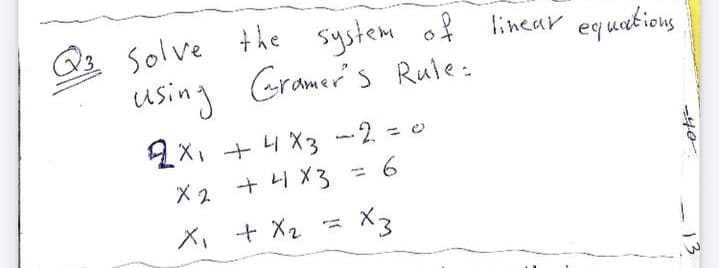 Q3 Solve the system of linear equations
using Cramer's Rule:
2x₁ + 4x₃ - 2 = 0
x₂ + 4x₃ = 6
x₁ + x₂ = x₃